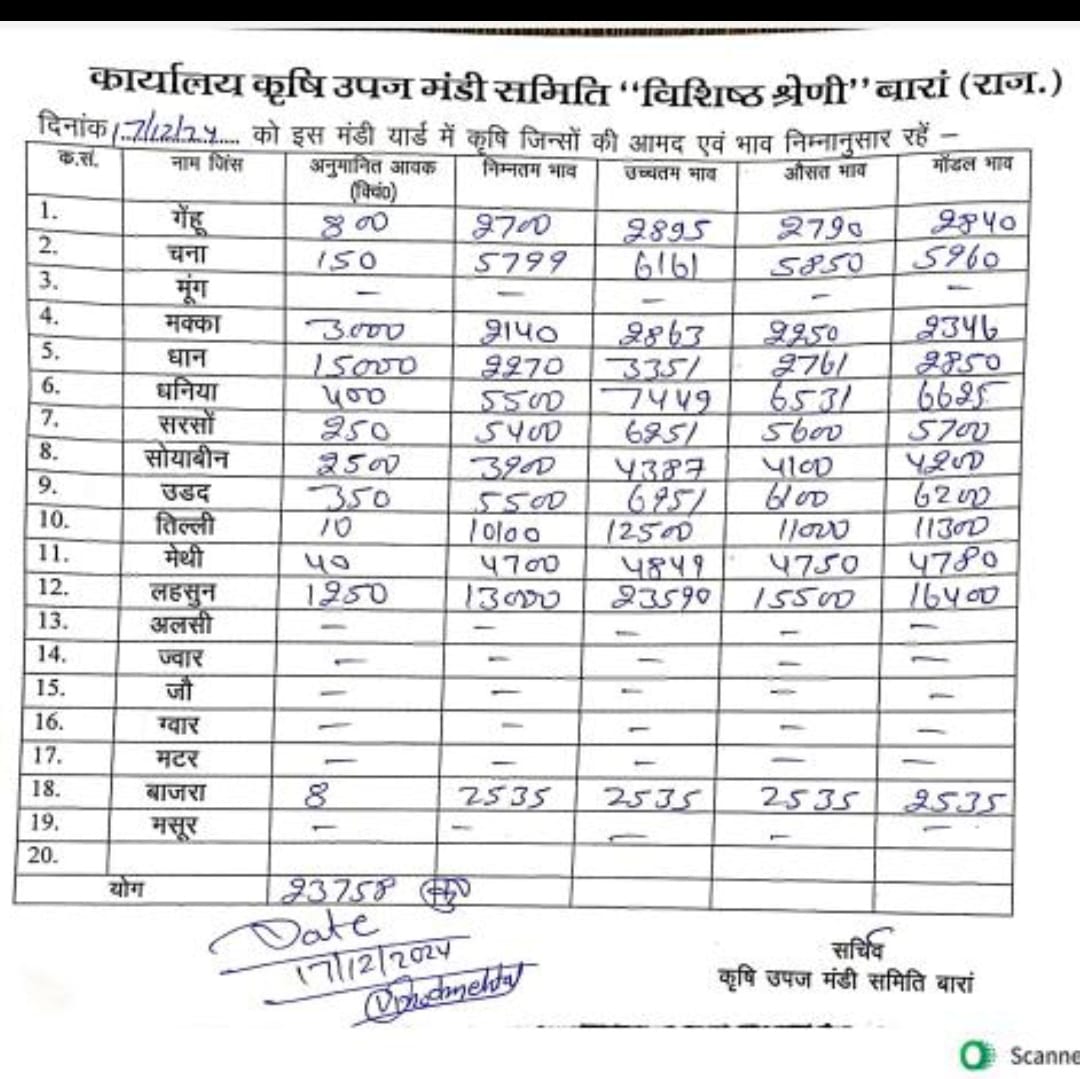 कार्यालय कृषि उपज मंडी समिति "विशिष्ठ श्रेणी" बारां (राज.)
दिनांक 17/12/24 को इस मंडी यार्ड में कृषि जिन्सों की आमद एवं भाव निम्नानुसार रहें –
क.सं. नाम जिंस अनुमानित आवक (क्विं0) निम्नतम भाव उच्चतम भाव औसत भाव मॉडल भाव
1. गेंहू 800 2700 2895 2790 2840
2. चना 150 5799 6161 5850 5960
3. मूंग – – – – –
4. मक्का 3000 2140 2863 2250 2346
5. धान 15000 2270 3351 2761 2850
6. धनिया 400 5500 7449 6531 6625
7. सरसों 250 5400 6251 5600 5700
8. सोयाबीन 2500 3900 4387 4100 4200
9. उडद 350 5500 6951 6100 6200
10. तिल्ली 10 10100 12500 11020 11300
11. मेथी 40 4700 4849 4750 4780
12. लहसुन 1250 13000 23590 15500 16400
13. अलसी – – – – –
14. ज्वार – – – – –
15. जौ – – – – –
16. ग्वार – – – – –
17. मटर – – – – –
18. बाजरा 8 2535 2535 2535 2535
19. मसूर – – – – –
20.
योग 23758
Date
17/12/2024
सचिव
कृषि उपज मंडी समिति बारां
Scanne